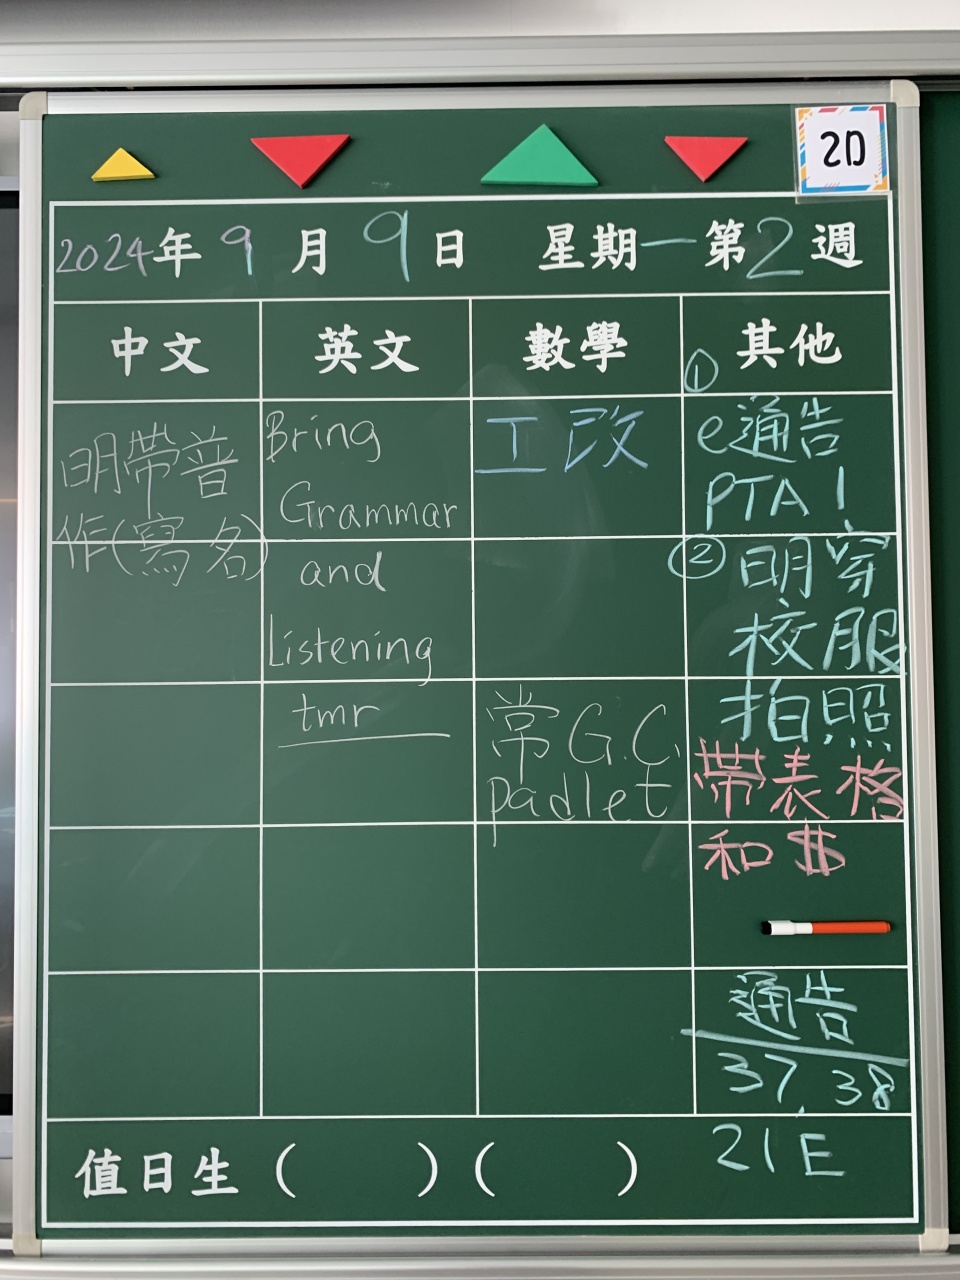 2D
2024年9月9日 星期一 第2週
中文 英文 數學 其他
明帶普
作(寫名)
Bring
Grammar
and
Listening
tmr
工改
常G.C.
padlet
①
e通告
PTA 1
② 明穿
校服
拍照
帶表格
和$
通告
37, 38
21E
值日生 ( ) ( )